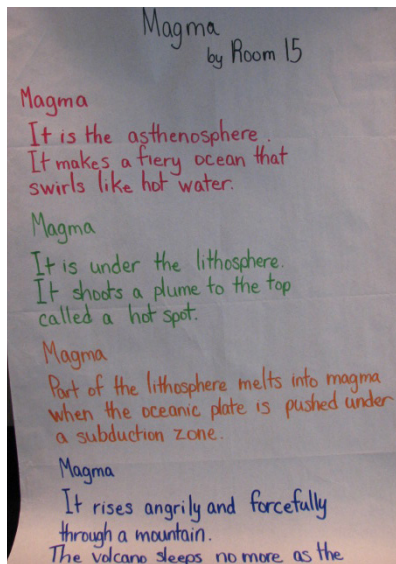 Magma
by Room 15
Magma
It is the asthenosphere.
It makes a fiery ocean that
swirls like hot water.
Magma
It is under the lithosphere.
It shoots a plume to the top
called a hot spot.
Magma
Part of the lithosphere melts into magma
when the oceanic plate is pushed under
a subduction zone.
Magma
It rises angrily and forcefully
through a mountain.
The volcano sleeps no more as the